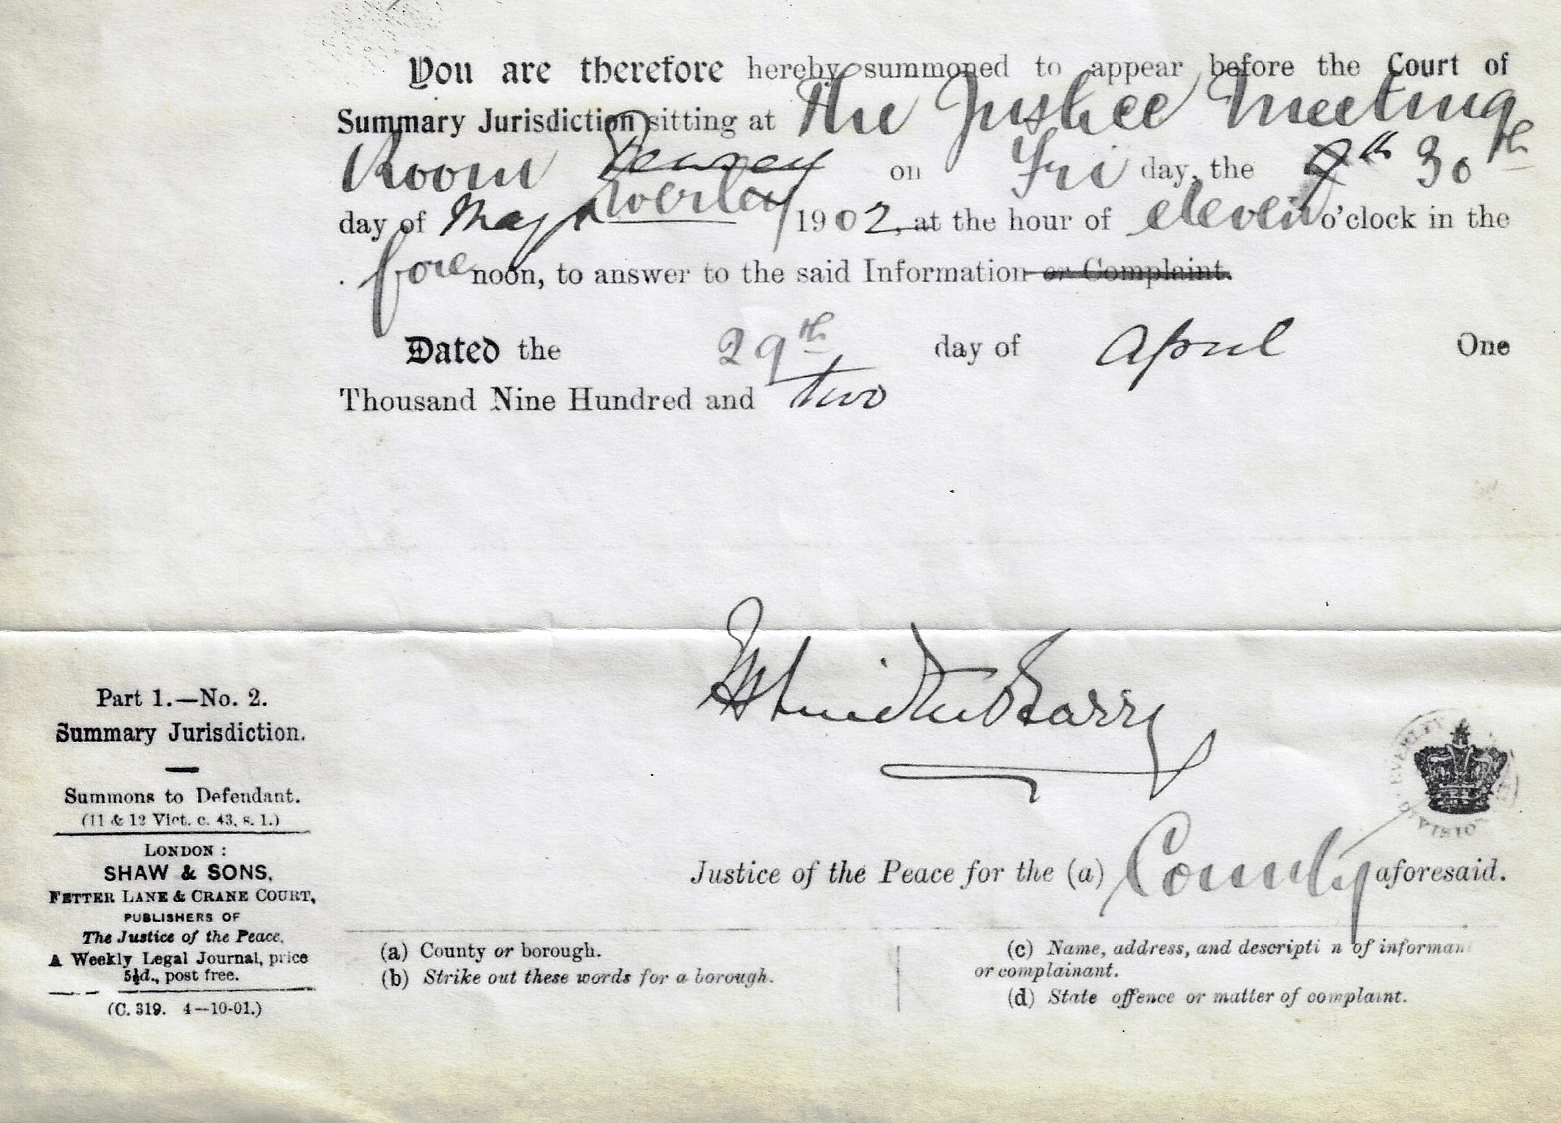 You are therefore hereby summoned to appear before the Court of
Summary Jurisdiction sitting at The Justice Meeting
Room on Friday, the 9th 30th
Werley
day of May 1902, at the hour of eleven o'clock in the
forenoon, to answer to the said Information or Complaint.
Dated the 29th day of April One
Thousand Nine Hundred and two
Barry
Justice of the Peace for the (a) County aforesaid.
BEVERLEY DIVISION
Part 1.—No. 2.
Summary Jurisdiction.
Summons to Defendant.
(11 & 12 Vict. c. 43, s. 1.)
LONDON :
SHAW & SONS,
FETTER LANE & CRANE COURT,
PUBLISHERS OF
The Justice of the Peace,
A Weekly Legal Journal, price
5½d., post free.
(C. 319. 4—10-01.)
(a) County or borough.
(b) Strike out these words for a borough.
(c) Name, address, and descripti n of informan
or complainant.
(d) State offence or matter of complaint.